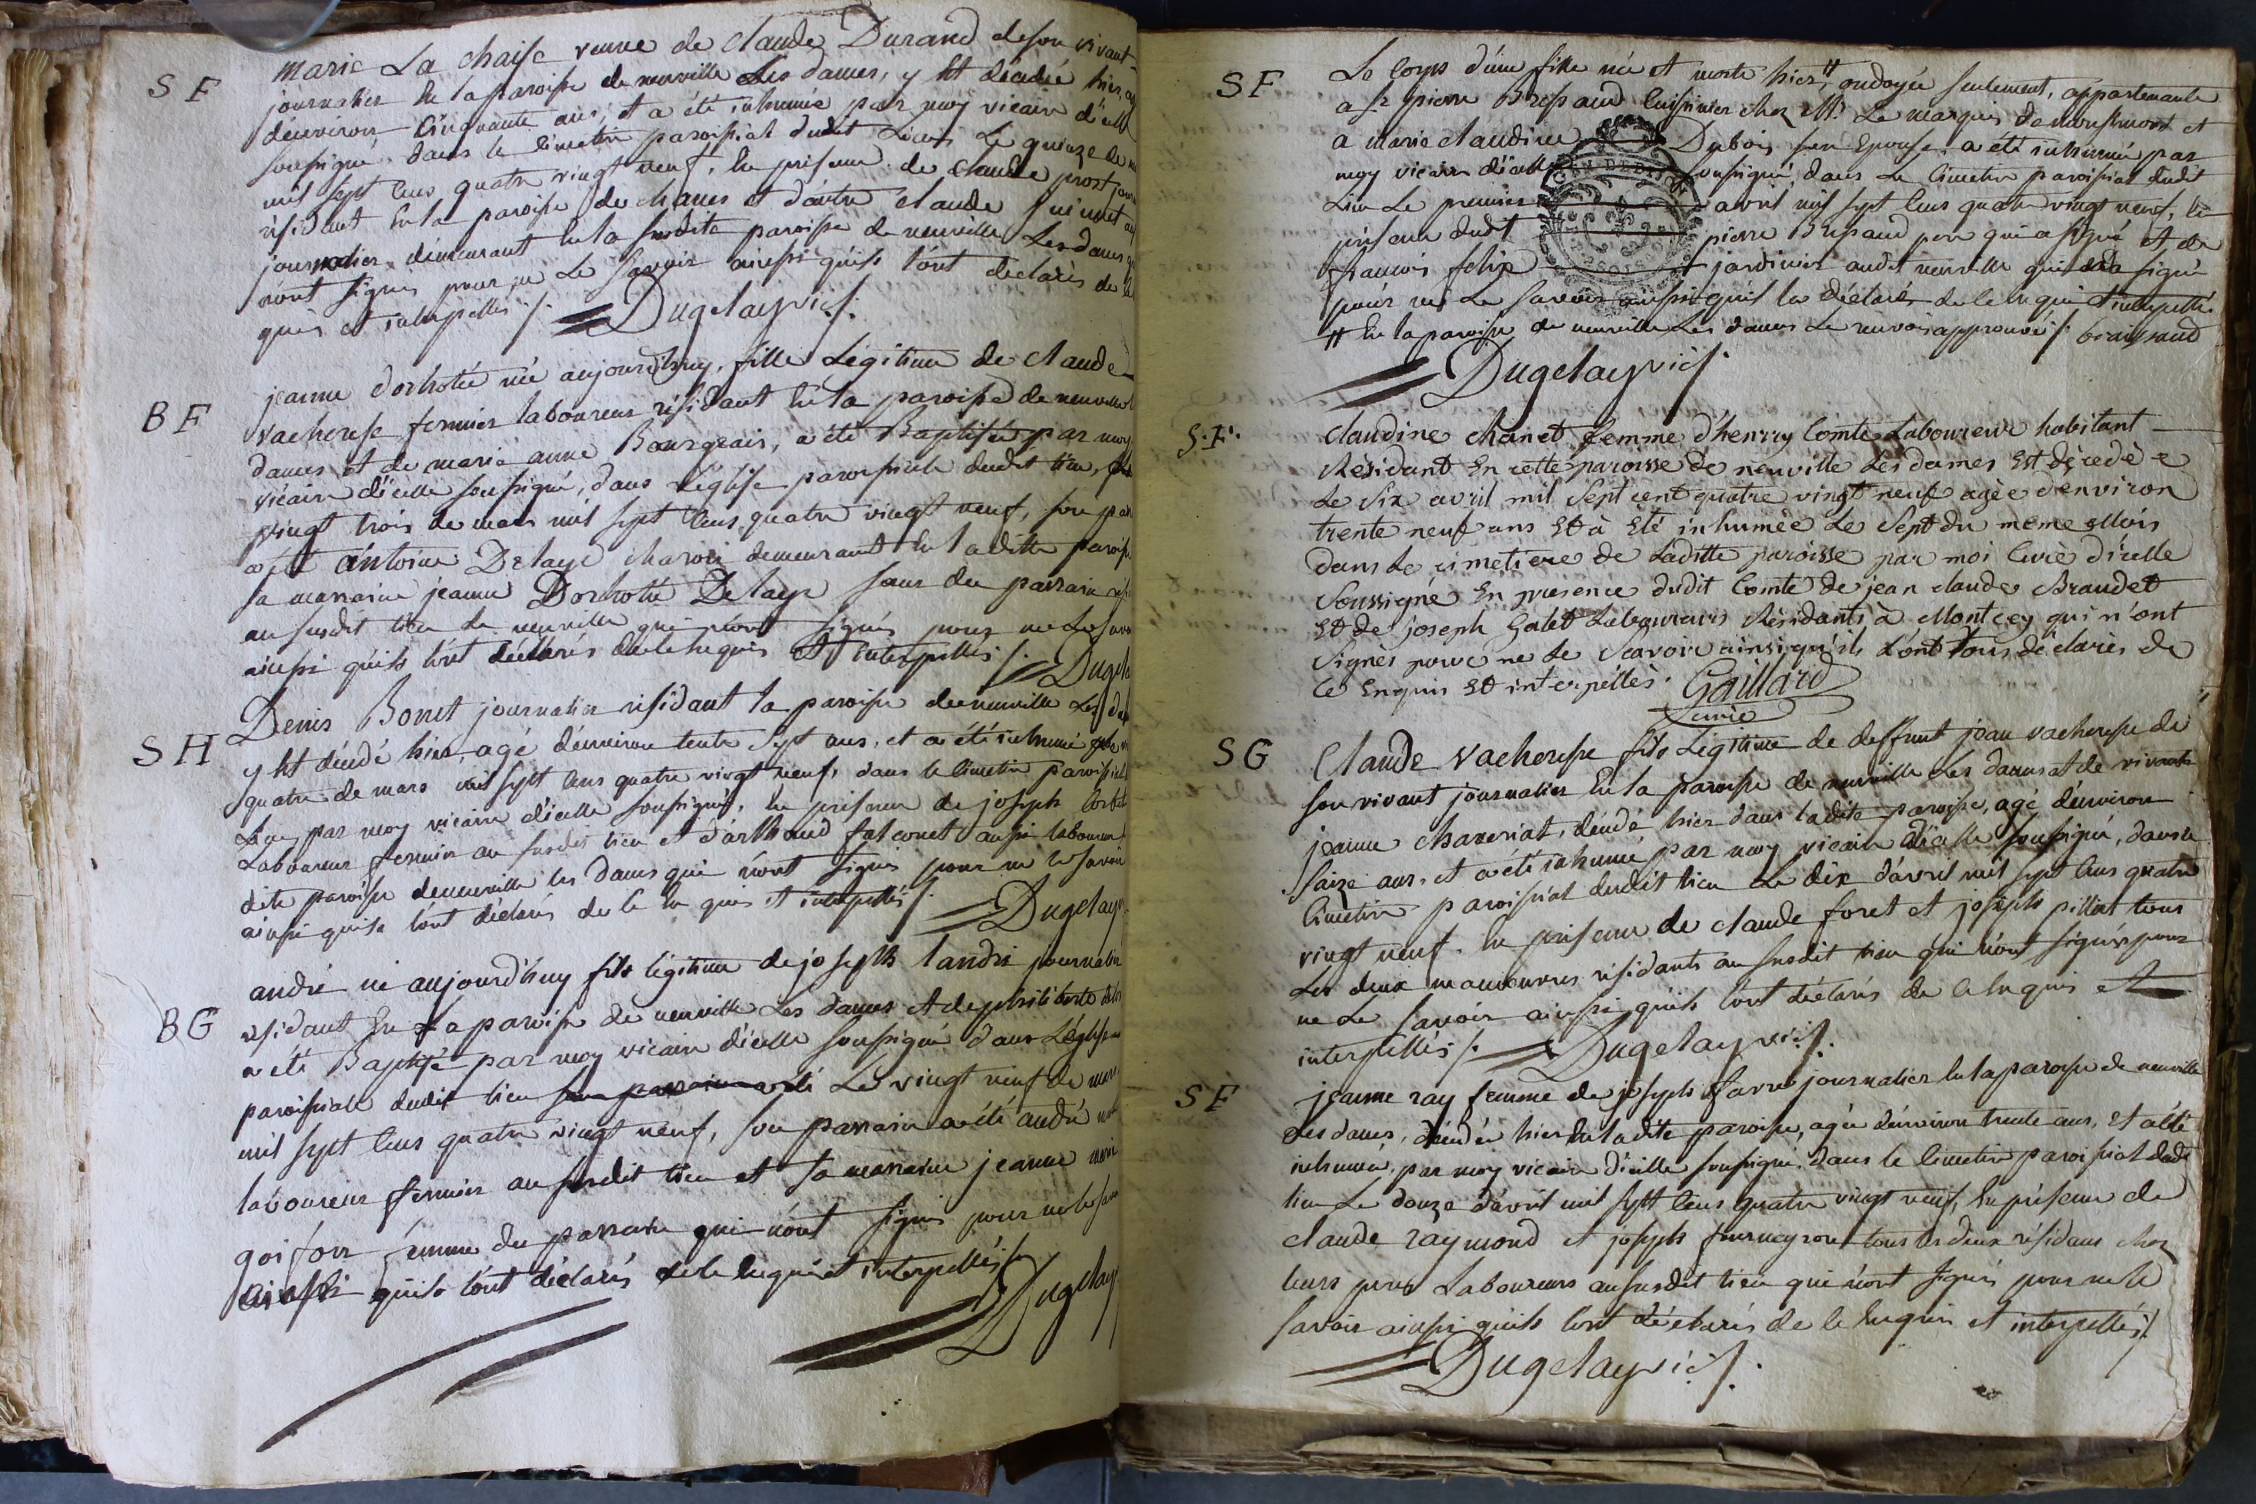 S F
marie La chaise veuve de claude Durand de son vivant
journalier En la paroisse de neuville Les dames, y Est décédée hier,
d'environ Cinquante ans, et a été inhumée par moy vicaire d'icelle
soussigné dans le Cimetiere paroissial dudit Lieu Le quinze de
mil sept Cens quatre vingt neuf, En presence de claude prost
résidant En la paroisse de chanes et d'autre claude
journalier demeurant En la susdite paroisse de neuville Les dames
n'ont signés pour ne Le savoir ainssi qu'ils l'ont déclarés de
quis et interpellés ./. Dugelay vic./.
B F
jeanne dorhotée née aujourdhuy, fille Légitime de claude
vacheresse fermier laboureur résidant En la paroisse de neuville
dames et de marie anne Bourgeais, a été Baptisée par moy
vicaire d'icelle soussigné, dans l'église paroissiale dudit lieu,
vingt trois de mars mil sept Cens quatre vingt neuf, son
a été antoine Delaye charon demeurant En ladite
sa marraine jeanne Dorhotée Delaye sœur du parrain
au susdit lieu de neuville qui n'ont signés pour ne Le
ainssi qu'ils l'ont déclarés de Ce Enquis Et interpellés ./.
S H
Denis Bonet journalier résidant la paroisse de neuville Les
y Est décédé hier, agé d'environ trente sept ans, et a été inhumé
quatre de mars mil sept Cens quatre vingt neuf, dans le Cimetiere
Lieu par moy vicaire d'icelle soussigné, En presence de joseph
Laboureur fermier au susdit lieu et d'arthaud falconet aussi laboureur
dite paroisse de neuville les dames qui n'ont signés pour ne le savoir
ainssi qu'ils l'ont déclarés de Ce En quis et interpellés ./. Dugelay
B G
andré né aujourd'huy fils légitime de joseph landri journalier
résidant En La paroisse de neuville Les dames et de philiberte
a été Baptisé par moy vicaire d'icelle soussigné dans L'église
paroissiale dudit lieu son parrain a été Le vingt neuf de
mil sept Cens quatre vingt neuf, son parrain a été andré
laboureur fermier au susdit lieu et sa marraine jeanne
goiffon femme du parrain qui n'ont signés pour ne le
ainssi qu'ils l'ont déclarés de Ce Enquis et interpellés ./.
Dugelay
S F
Le Corps d'une fille née et morte hier, # ondoyée seulement, appartenante
a Sr pierre Bressaud Cuisinier chez Mr. Le marquis de
a marie claudine Dubois son Epouse, a été inhumée par
moy vicaire d'icelle soussigné, dans Le Cimetiere paroissial dudit
Lieu Le premier avril mil sept Cens quatre vingt neuf, En
presence dudit pierre Bressaud pere qui a signé et de
francois felix jardinier audit neuville qui signé
pour ne Le savoir ainssi qu'il l'a déclaré de Ce En quis et interpellé.
# En la paroisse de neuville Les dames Le renvoi approuvé ./.
Dugelay vic./.
S. F.
Claudine chanet femme d'henry Comte Laboureur habitant
Résidant En cette paroisse de neuville Les dames Est décedèe
Le Six avril mil Sept cent quatre vingt neuf agèe d'environ
trente neuf ans Et à Eté inhumèe Le Sept du meme Mois
dans Le cimetiere de Laditte paroisse par moi Curè d'icelle
Soussigné En presence dudit Comte de jean claude Braudet
Et de joseph Galet Laboureurs Résidants à Montcey qui n'ont
Signès pour ne Le Scavoir ainsi qu'ils L'ont tous déclarès de
Ce Enquis Et interpèllès. Gaillard
curè
S G
Claude vacheresse fils Légitime de deffunt jean vacheresse de
son vivant journalier En la paroisse de neuville Les dames et de vivante
jeanne chaveriat, décédé hier dans ladite paroisse, agé d'environ
saize ans, et a été inhumé par moy vicaire d'icelle soussigné, dans le
Cimetiere paroissial dudit lieu Le dix d'avril mil sept Cens quatre
vingt neuf. En presence de claude foret et joseph pillat tous
Les deux manœuvres résidants au susdit lieu qui n'ont signés pour
ne Le savoir ainssi qu'ils l'ont déclarés de Ce Enquis et
interpellés ./. Dugelay vic./.
S F
jeanne ray femme de joseph favre journalier En la paroisse de neuville
Les dames, décédée hier En ladite paroisse, agée d'environ trente ans, et a été
inhumée par moy vicaire d'icelle soussigné dans le Cimetiere paroissial dudit
lieu Le douze d'avril mil sept Cens quatre vingt neuf, En présence de
claude raymond et joseph fourneyron tous les deux résidans chez
leurs peres Laboureurs au susdit lieu qui n'ont signés pour ne le
savoir ainssi qu'ils l'ont déclarés de Ce Enquis et interpellés ./.
Dugelay vic./.